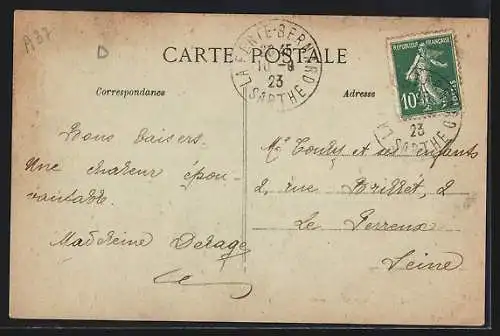 A37
D
CARTE POSTALE
LA FERTE-BERNARD
23
SARTHE
REPUBLIQUE FRANÇAISE
10
POSTES
23
SARTHE
Correspondance
Adresse
Bons baisers.
Une chaleur épou-
vantable.
Madeleine Delage
et ses enfants
2, rue Brillet, 2
Le Perreux
Seine